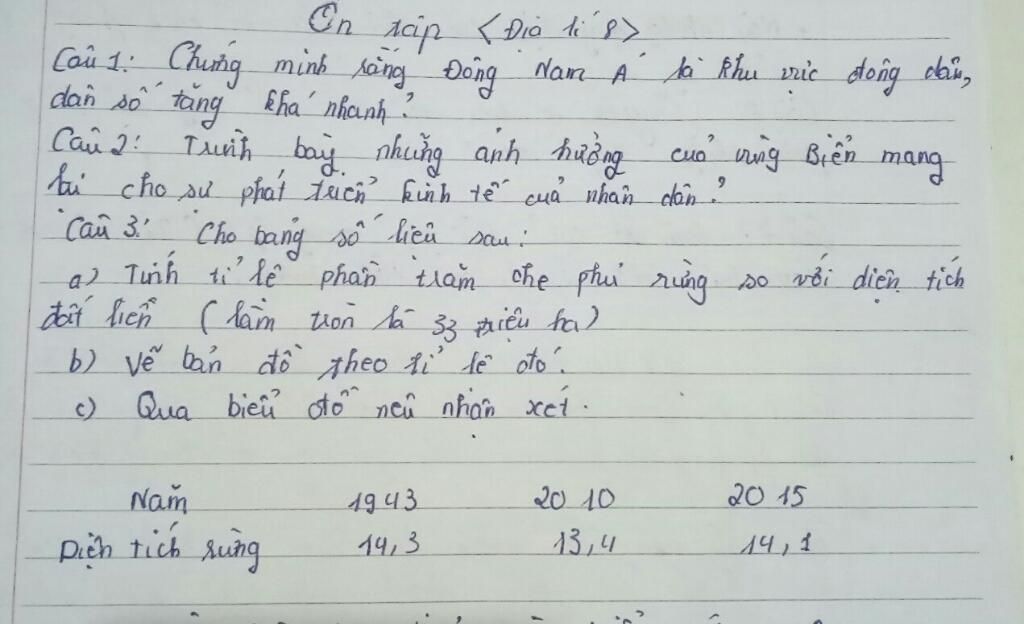 Ôn tập <Địa lí 8>
Câu 1: Chứng minh rằng Đông Nam Á là khu vực đông dân,
dân số tăng khá nhanh?
Câu 2: Trình bày những ảnh hưởng của vùng Biển mang
lại cho sự phát triển kinh tế của nhân dân?
Câu 3: Cho bảng số liệu sau:
a) Tính tỉ lệ phần trăm che phủ rừng so với diện tích
đất liền (làm tròn là 33 triệu ha)
b) Vẽ bản đồ theo tỉ lệ đó.
c) Qua biểu đồ nêu nhận xét.
Năm 1943 2010 2015
Diện tích rừng 14,3 13,4 14,1